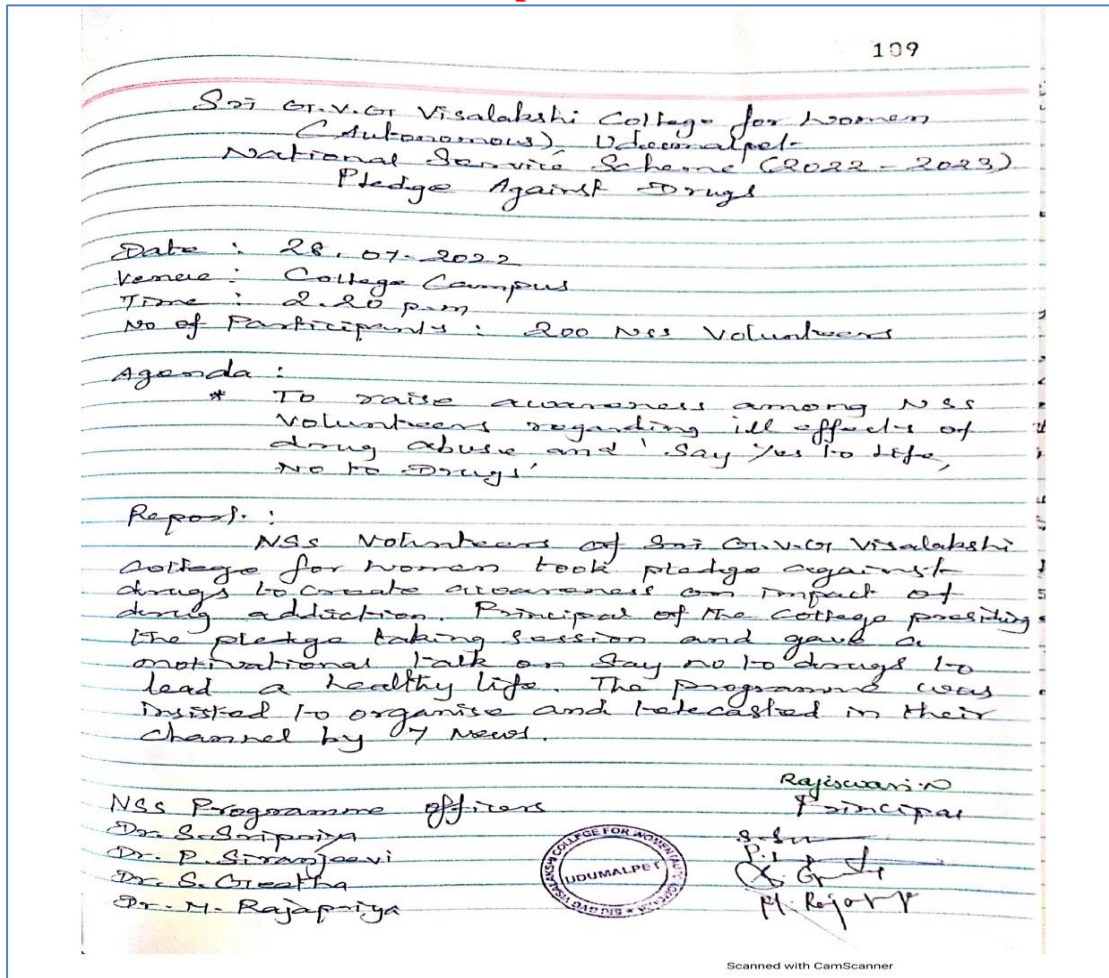 109
Sri G.V.G Visalakshi College for Women
(Autonomous), Udumalpet
National Service Scheme (2022-2023)
Pledge Against Drugs
Date : 28.07.2022
Venue : College Campus
Time : 2.20 p.m
No of Participants : 200 NSS Volunteers
Agenda :
* To raise awareness among NSS
Volunteers regarding ill effects of
drug abuse and 'Say Yes to Life,
No to Drugs'
Report :
NSS Volunteers of Sri G.V.G Visalakshi
College for Women took pledge against
drugs to create awareness on impact of
drug addiction. Principal of the College presiding
the pledge taking session and gave a
motivational talk on Say no to drugs to
lead a healthy life. The programme was
insisted to organise and telecasted in their
channel by 7 News.
Rajiswari.N
NSS Programme officers
Principal
Dr. S. Sripriya
Dr. P. Siranjeevi
Dr. S. Geetha
Dr. M. Rajapriya
UDUMALPET
Scanned with CamScanner